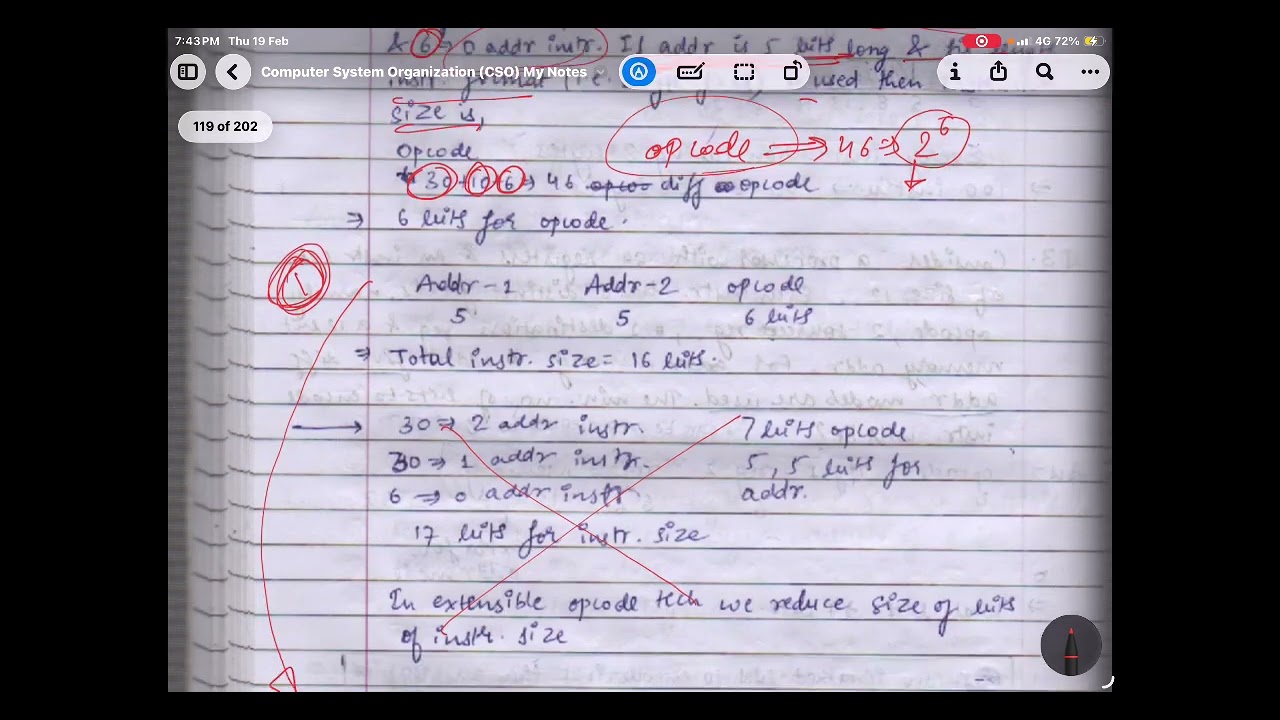 7:43 PM Thu 19 Feb
4G 72%
& 6 => 0 addr instr. If addr is 5 bits long &
Computer System Organization (CSO) My Notes
instr. format used then
119 of 202
size is,
Opcode
opcode => 46 => 2^6
30 + 10 + 6 => 46 diff opcode
=> 6 bits for opcode.
1
Addr-1 Addr-2 opcode
5 5 6 bits
=> Total instr. size = 16 bits.
30 => 2 addr instr. 7 bits opcode
30 => 1 addr instr. 5, 5 bits for
6 => 0 addr instr addr.
17 bits for instr. size
In extensible opcode tech we reduce size of bits
of instr. size